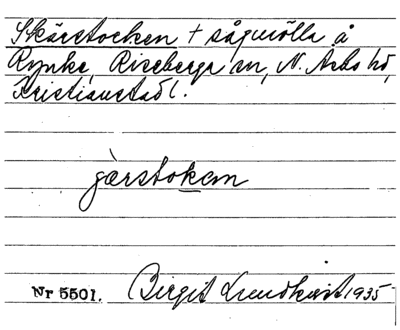 Skärstocken + sågmölla å
Rynke, Riseberga sn, N. Åsbo hd,
Kristianstad l.
jærstoken
Nr 5501. Birgit Lundkvist 1935